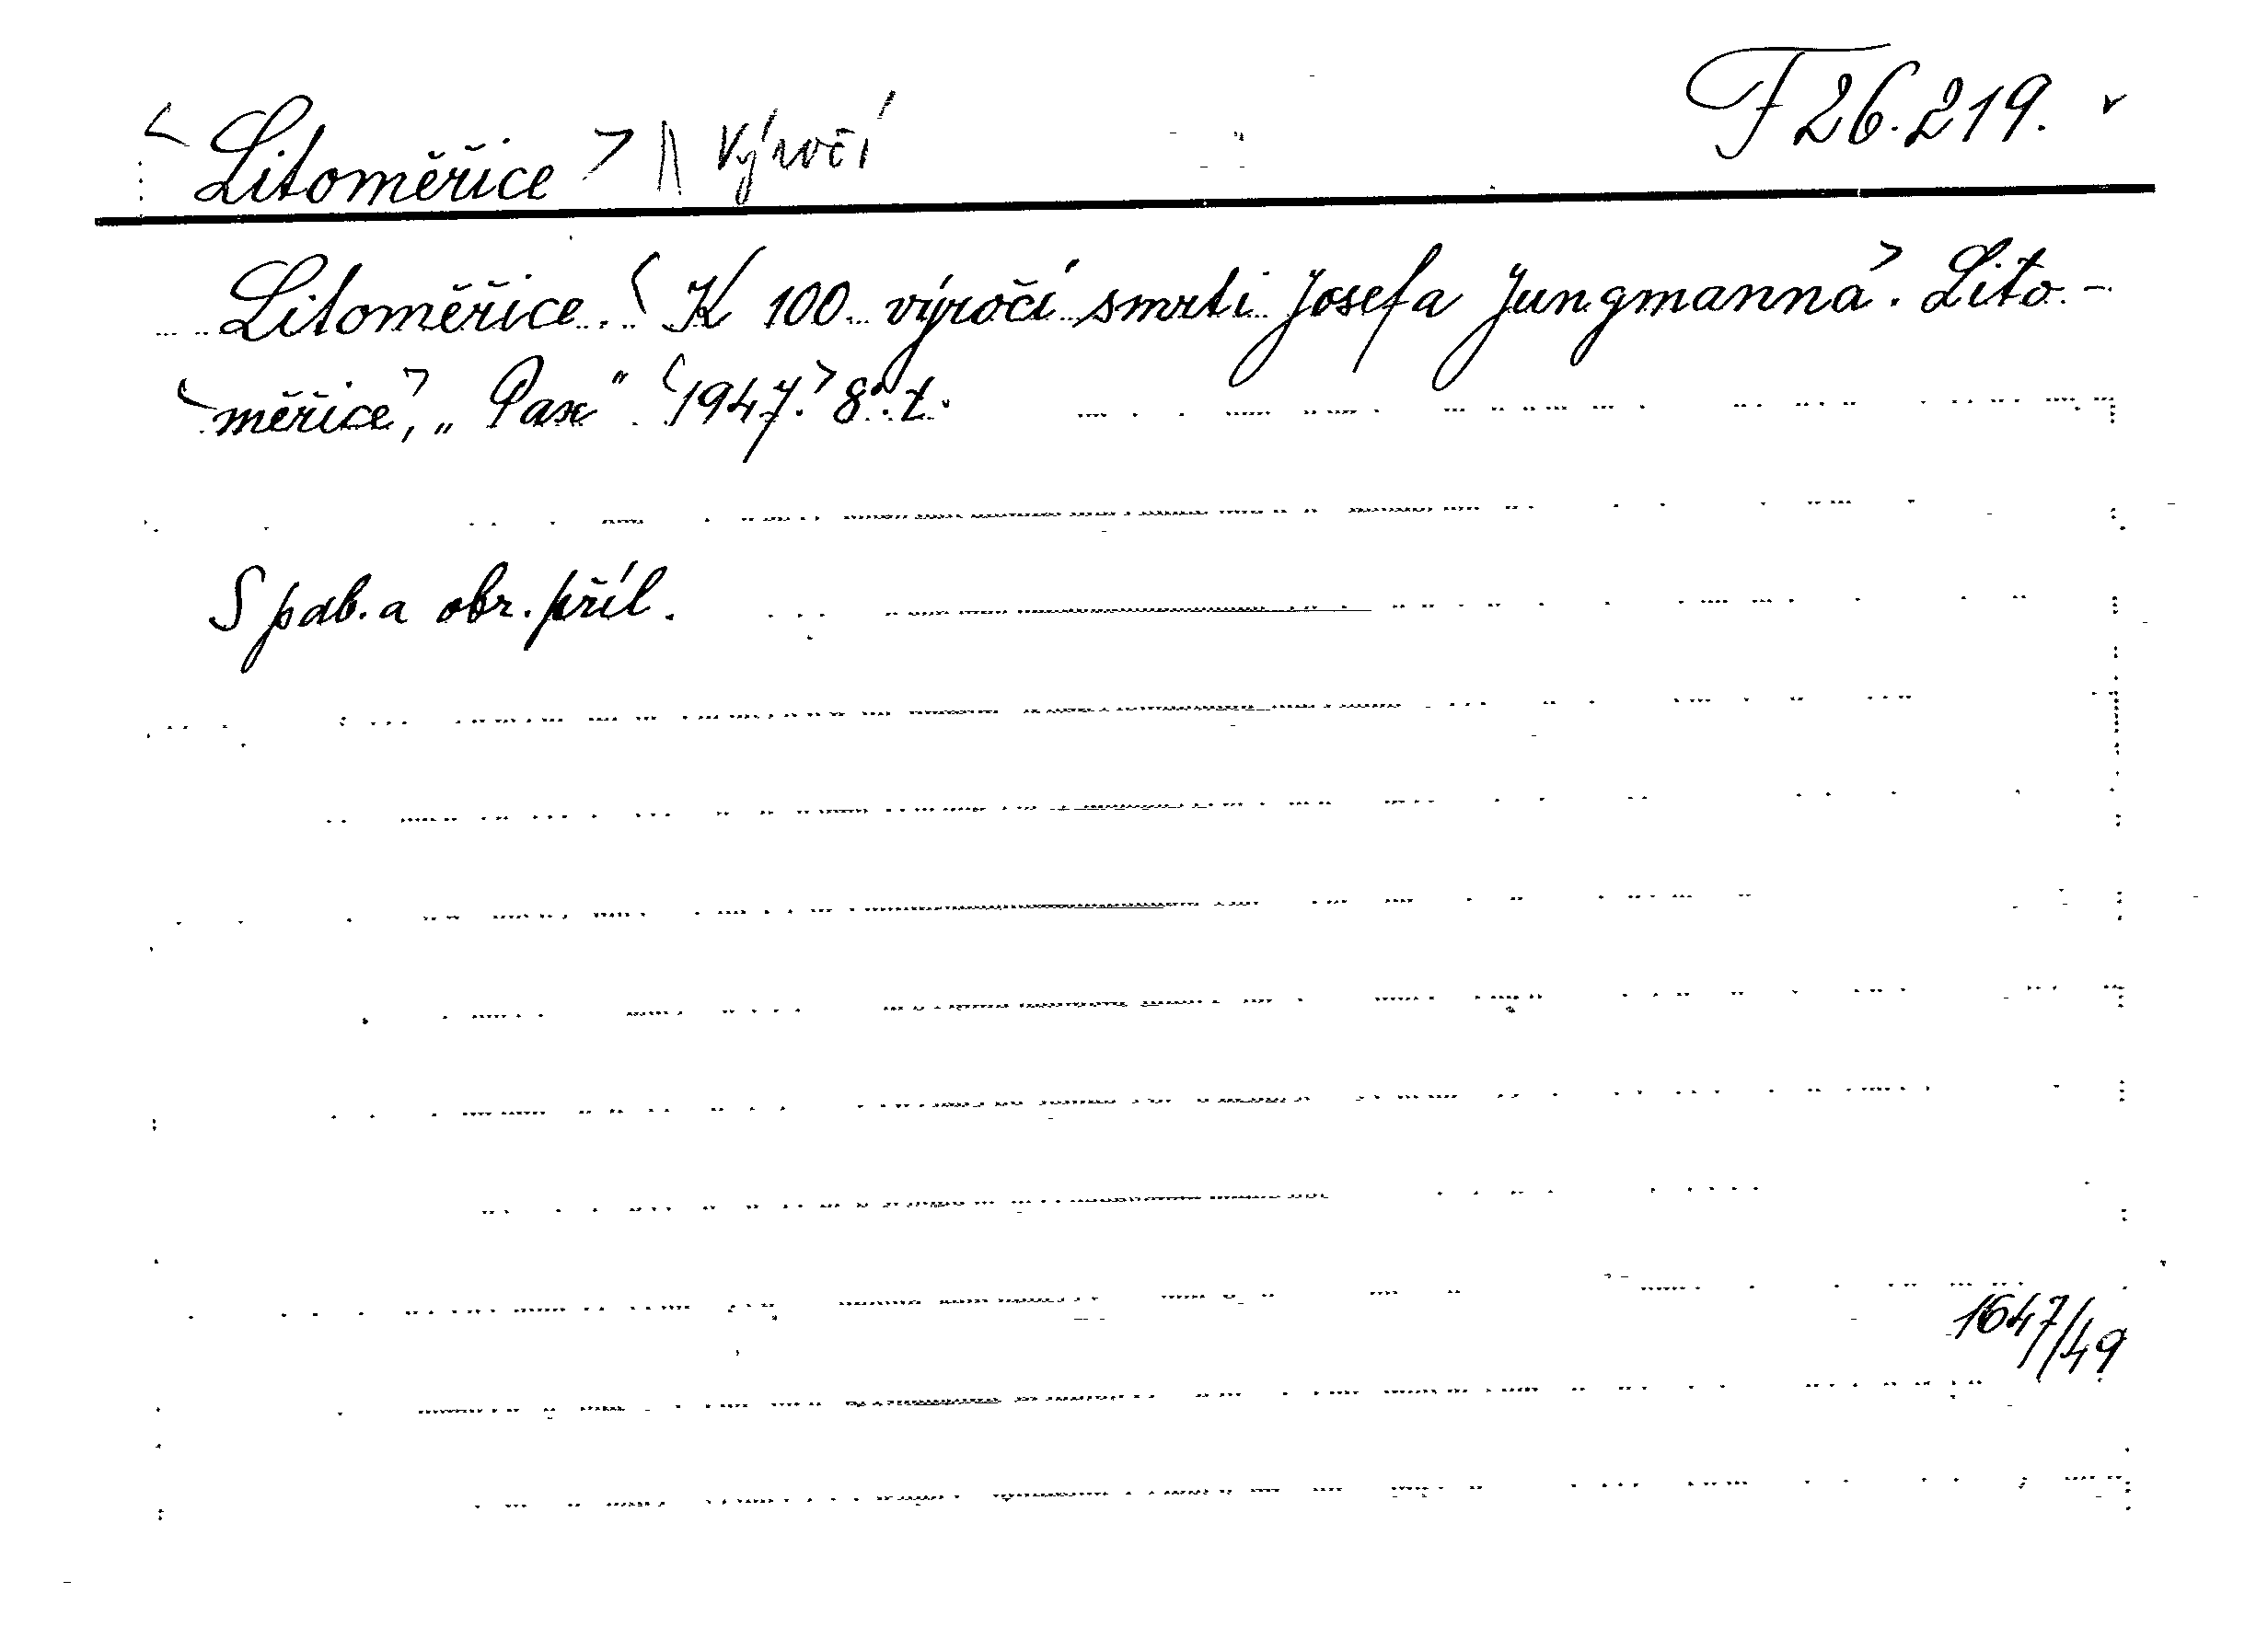 <Litoměřice> Výročí F 26.219.
Litoměřice. <K 100 výročí smrti Josefa Jungmanna>. Lito-
<měřice>, „Pax" <1947.> 8°. t.
S pdb. a obr. příl.
1647/49